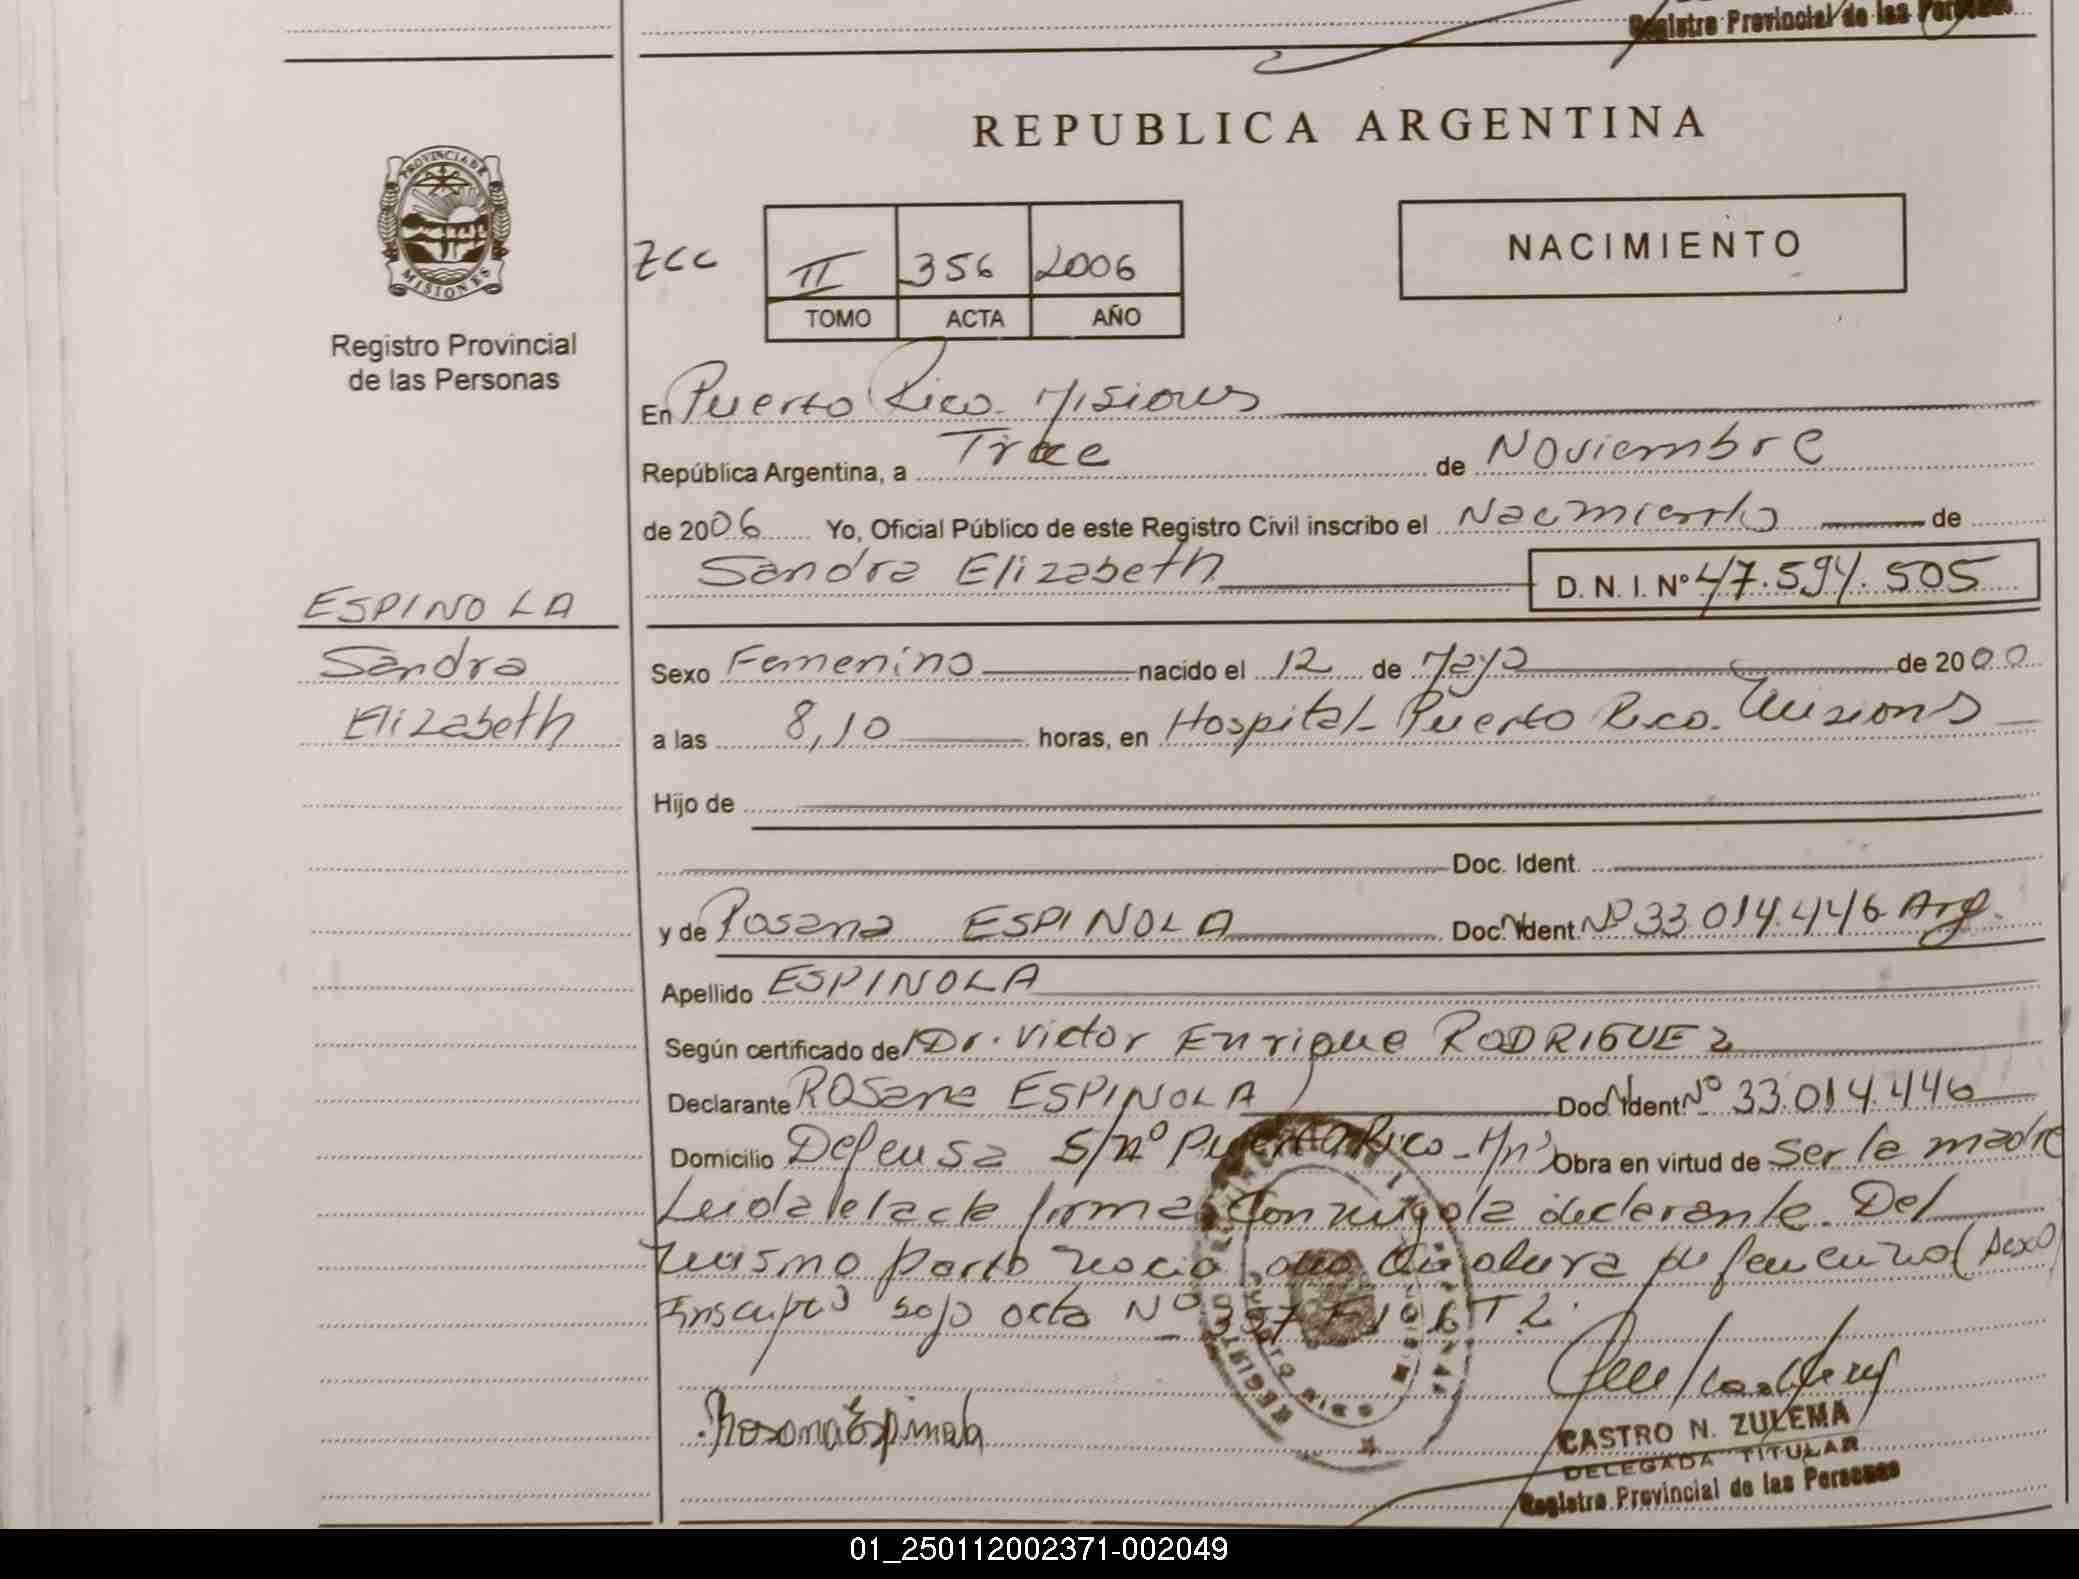 Registro Provincial de las Personas
REPUBLICA ARGENTINA
PROVINCIA DE
MISIONES
Registro Provincial
de las Personas
ZCC
II 356 2006
TOMO ACTA AÑO
NACIMIENTO
En Puerto Rico. Misiones
República Argentina, a Trece de Noviembre
de 2006 Yo, Oficial Público de este Registro Civil inscribo el Nacimiento de
Sandra Elizabeth D. N. I. Nº 47.594.505
ESPINOLA
Sandra
Elizabeth
Sexo Femenino nacido el 12 de Mayo de 2000
a las 8,10 horas, en Hospital Puerto Rico. Misiones
Hijo de
Doc. Ident.
y de Rosana ESPINOLA Doc. Ident. Nº 33.014.446 Arg.
Apellido ESPINOLA
Según certificado de Dr. Victor Enrique RODRIGUEZ
Declarante Rosana ESPINOLA Doc. Ident. Nº 33.014.446
Domicilio Defensa S/nº Puerto Rico - Mnes Obra en virtud de ser la madre
Leida el acta firma conmigo la declarante. Del
mismo parto nació otra criatura de femenino (sexo)
Inscripta bajo acta Nº 357 T 2.
Rosana Espinola
CASTRO N. ZULEMA
DELEGADA TITULAR
Registro Provincial de las Personas
01_250112002371-002049